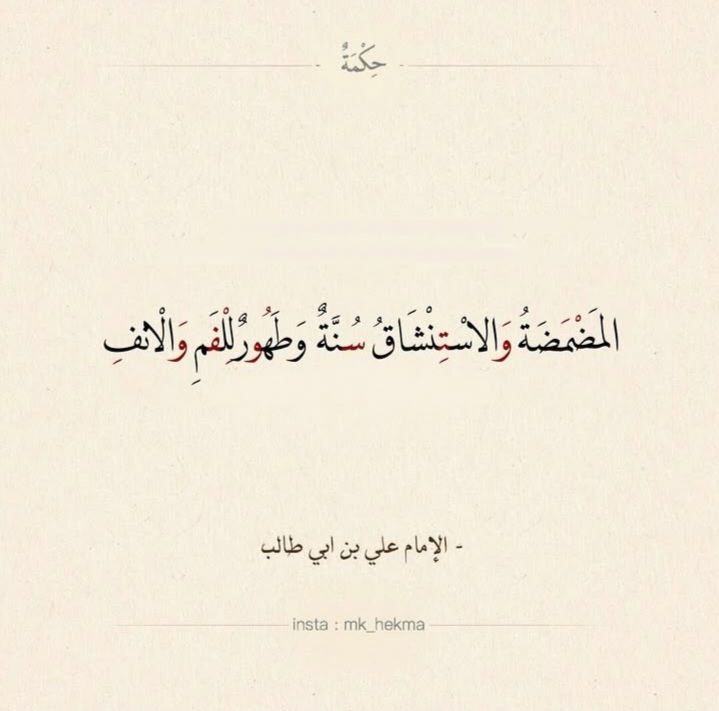 حِكْمَةٌ
المَضْمَضَةُ وَالاسْتِنْشَاقُ سُنَّةٌ وَطَهُورٌ لِلْفَمِ وَالْانفِ
- الإمام علي بن ابي طالب
insta : mk_hekma